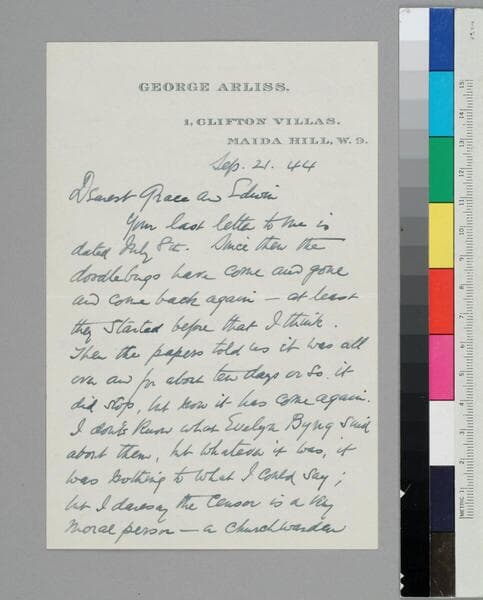 GEORGE ARLISS.
1, CLIFTON VILLAS.
MAIDA HILL, W. 9.
Sep. 21. 44
Dearest Grace and Edwin
Your last letter to me is
dated July 8th. Since then the
doodlebugs have come and gone
and come back again – at least
they started before that I think.
Then the papers told us it was all
over and for about ten days or so it
did stop, but now it has come again.
I don't know what Evelyn Byng said
about them, but whatever it was, it
was nothing to what I could say;
but I daresay the Censor is a very
moral person – a Churchwarden